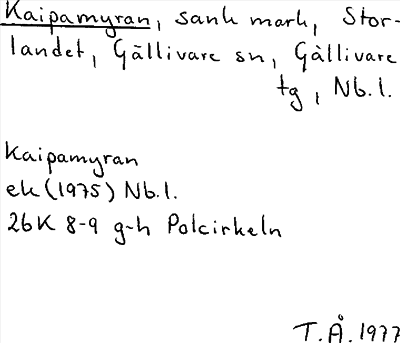 Kaipamyran, sank mark, Stor-
landet, Gällivare sn, Gällivare
tg, Nb.l.
Kaipamyran
ek (1975) Nb.l.
26K 8-9 g-h Polcirkeln
T.Å. 1977